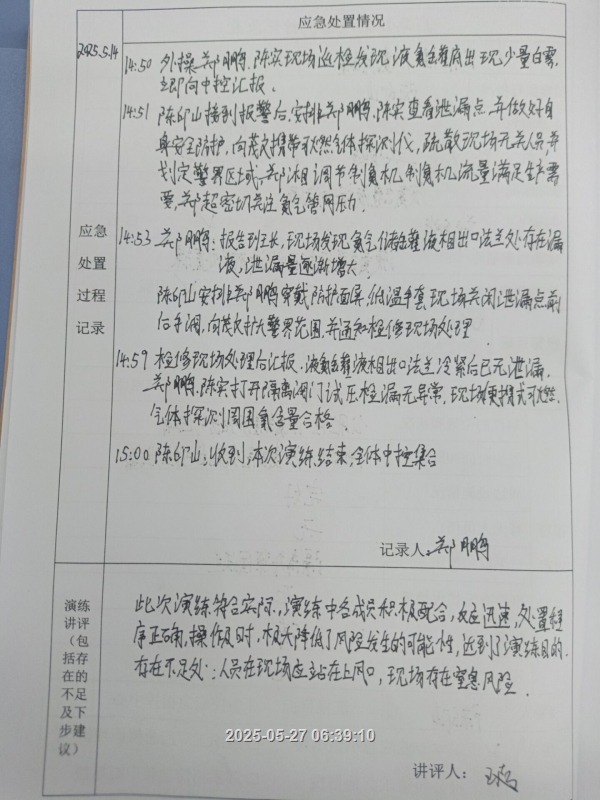 应急处置情况
2025.5.14
14:50 外操郑鹏鹏、陈实现场巡检发现液氮储罐底出现少量白雾,
立即向中控汇报。
14:51 陈邙山接到报警后,安排郑鹏鹏、陈实查看泄漏点,并做好自
身安全防护,向茂文携带可燃气体探测仪,疏散现场无关人员并
划定警界区域,郑湘调节制氮机,制氮机流量满足生产需
要,郑超密切关注氮气管网压力.
应急
处置
过程
记录
14:53 郑鹏鹏:报告班长,现场发现氮气储罐液相出口法兰处存在漏
液,泄漏量逐渐增大.
陈邙山安排郑鹏鹏穿戴防护面屏,低温手套,现场关闭泄漏点前
后手阀,向茂文扩大警界范围,并通知检修现场处理.
14:59 检修现场处理后汇报,液氮储罐液相出口法兰冷紧后已无泄漏,
郑鹏鹏、陈实打开隔离阀门试压检漏无异常,现场携式可燃
气体探测周围氧含量合格.
15:00 陈邙山:收到,本次演练结束,全体中控集合
记录人:郑鹏鹏
演练
讲评
(包
括存
在的
不足
及下
步建
议)
此次演练符合实际,演练中各成员积极配合,反应迅速,处置程
序正确,操作及时,极大降低了风险发生的可能性,达到了演练目的.
存在不足处:人员在现场应站在上风口,现场存在窒息风险.
2025-05-27 06:39:10
讲评人: